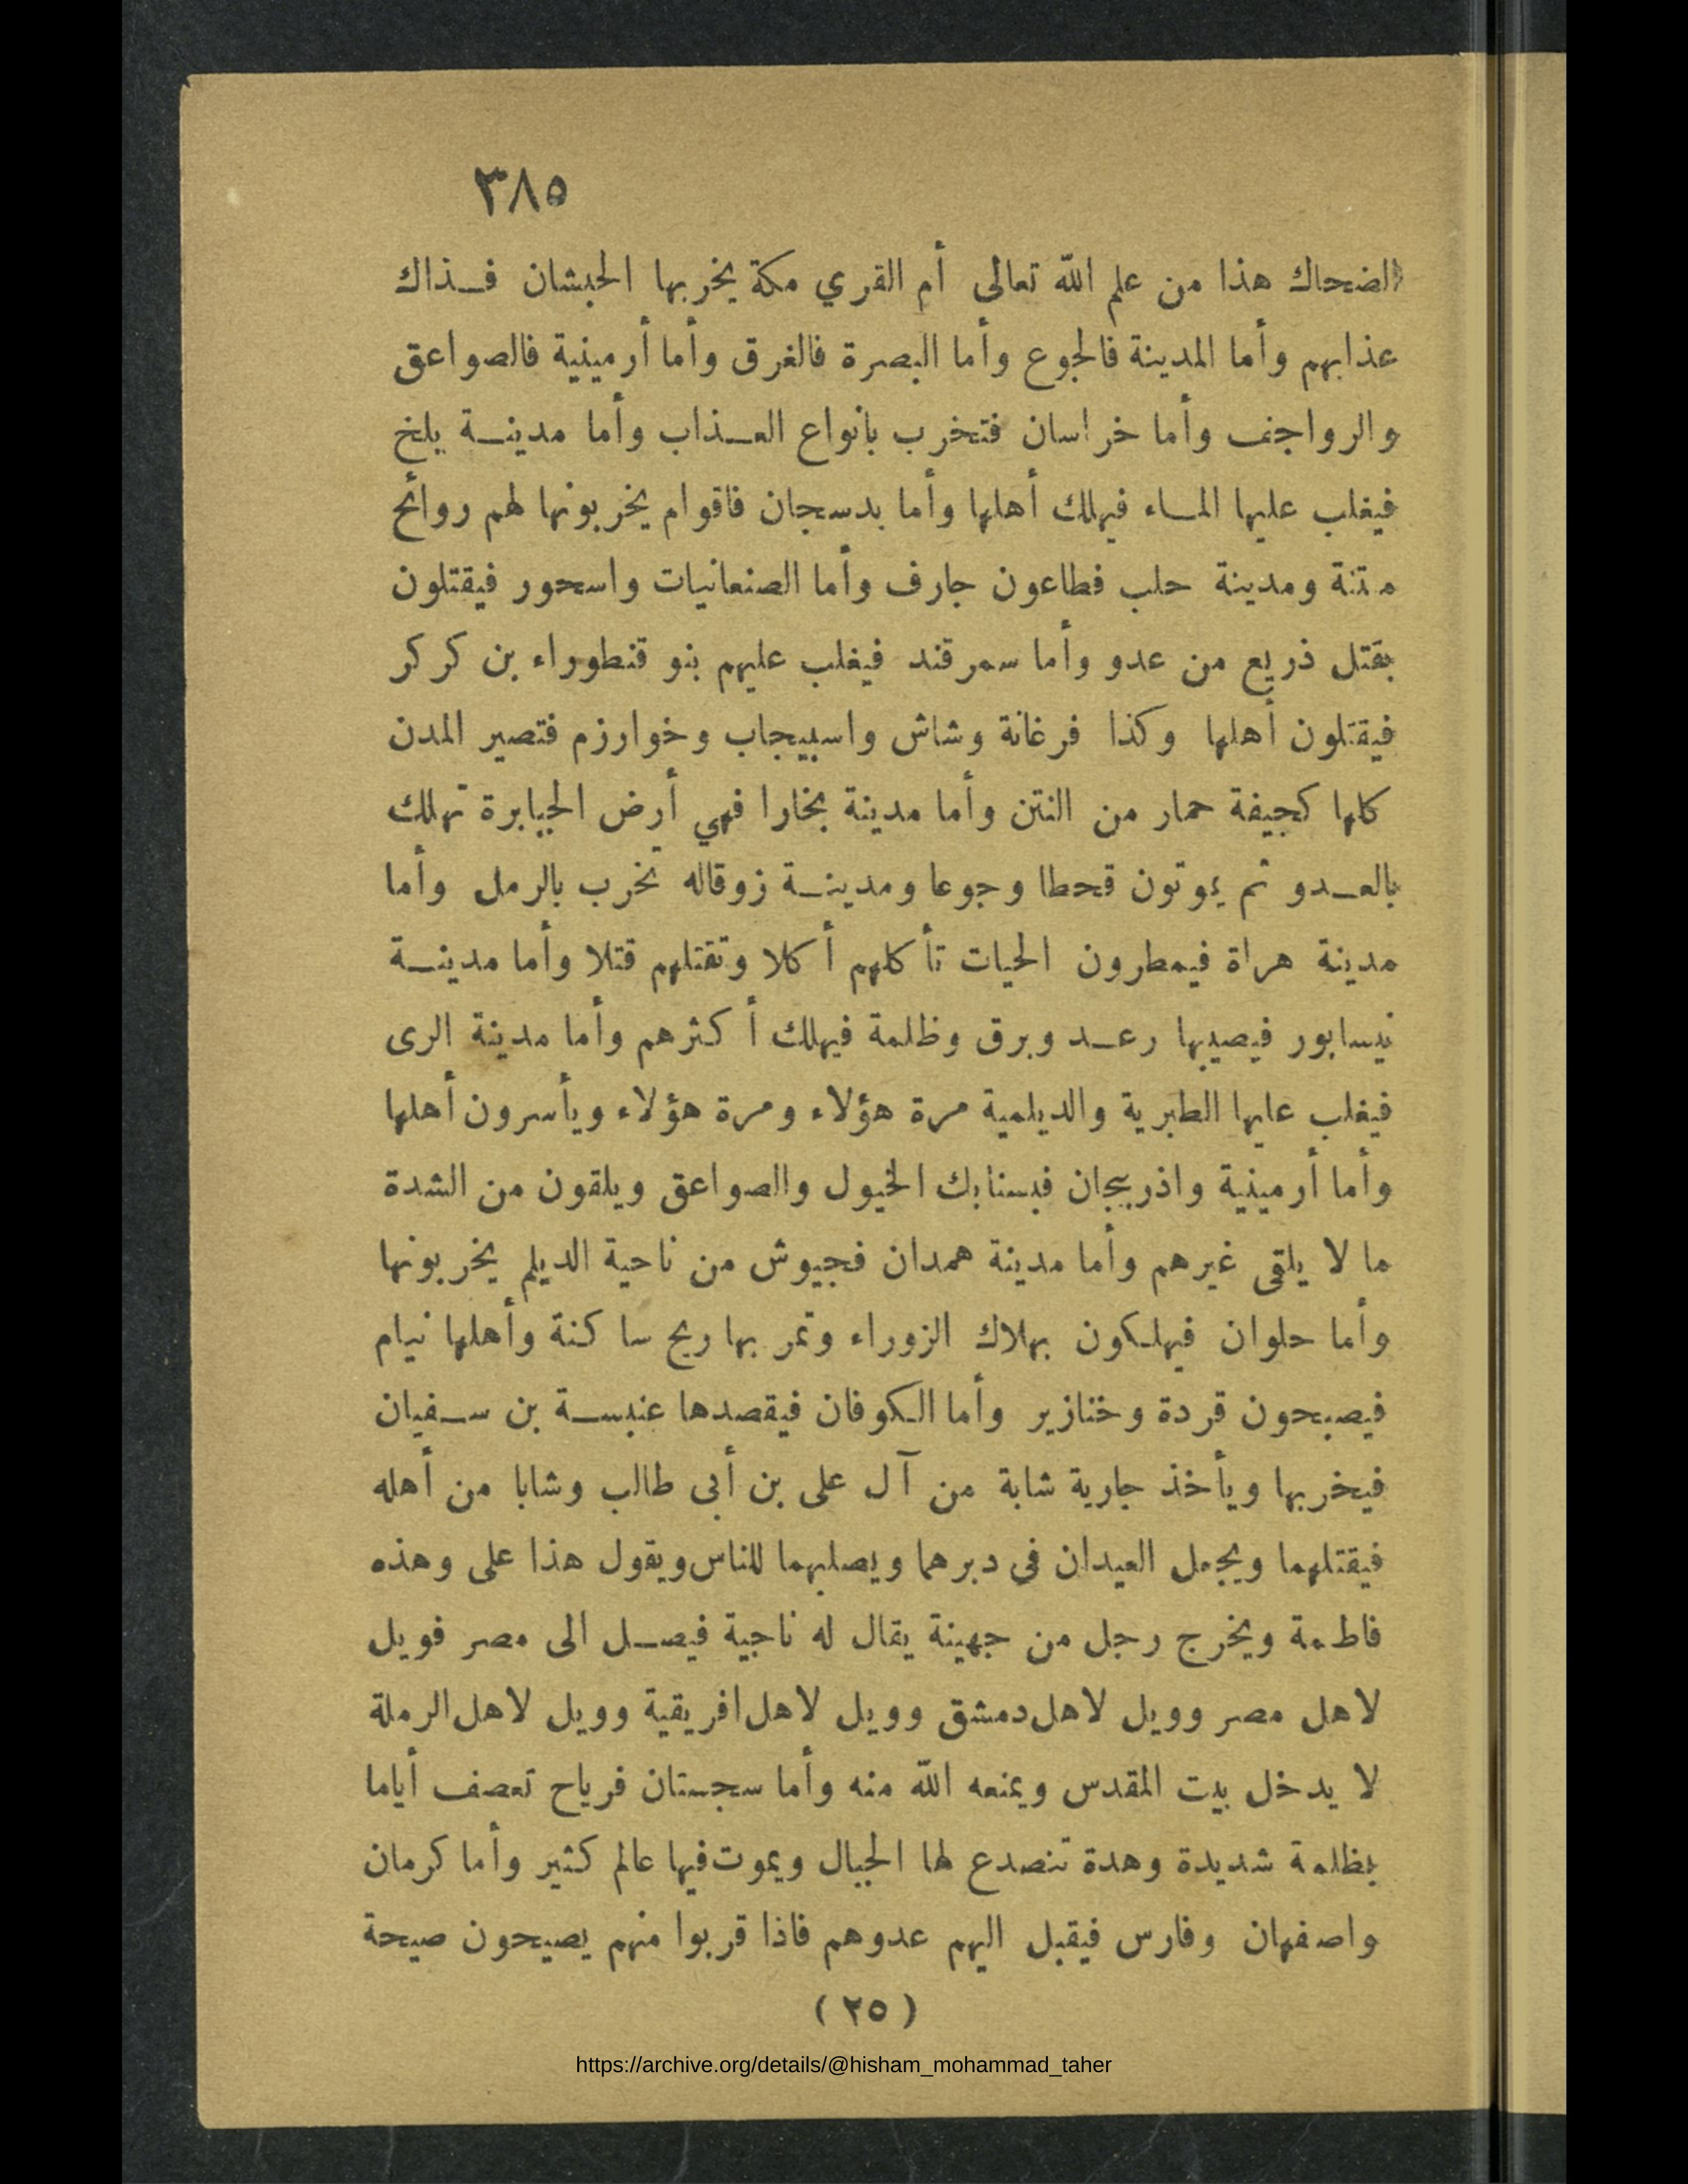 ٣٨٥
الضحاك هذا من علم الله تعالى أم القري مكة يخربها الحبشان فـذاك
عذابهم وأما المدينة فالجوع وأما البصرة فالغرق وأما أرمينية فالصواعق
والرواجف وأما خراسان فتخرب بانواع العـذاب وأما مدينـة بلخ
فيغلب عليها المـاء فيهلك أهلها وأما بدسجان فاقوام يخربونها لهم روائح
متنة ومدينة حلب فطاعون جارف وأما الصنعانيات واسحور فيقتلون
بقتل ذريع من عدو وأما سمرقند فيغلب عليهم بنو قنطوراء بن كركر
فيقتلون أهلها وكذا فرغانة وشاش واسبيجاب وخوارزم فتصير المدن
كلها كجيفة حمار من النتن وأما مدينة بخارا فهي أرض الجبابرة تهلك
بالعـدو ثم يموتون قحطا وجوعا ومدينـة زوقاله تخرب بالرمل وأما
مدينة هراة فيمطرون الحيات تأكلهم أكلا وتقتلهم قتلا وأما مدينـة
نيسابور فيصيبها رعـد وبرق وظلمة فيهلك أكثرهم وأما مدينة الرى
فيغلب عليها الطبرية والديلمية مرة هؤلاء ومرة هؤلاء ويأسرون أهلها
وأما أرمينية واذربيجان فبسنابك الخيول والصواعق ويلقون من الشدة
ما لا يلقى غيرهم وأما مدينة همدان فجيوش من ناحية الديلم يخربونها
وأما حلوان فيهلكون بهلاك الزوراء وتمر بها ريح ساكنة وأهلها نيام
فيصبحون قردة وخنازير وأما الكوفان فيقصدها عنبسـة بن سـفيان
فيخربها ويأخذ جارية شابة من آل على بن أبى طالب وشابا من أهله
فيقتلهما ويجعل العيدان فى دبرهما ويصلبهما للناس ويقول هذا على وهذه
فاطمة ويخرج رجل من جهينة يقال له ناجية فيصـل الى مصر فويل
لاهل مصر وويل لاهل دمشق وويل لاهل افريقية وويل لاهل الرملة
لا يدخل بيت المقدس ويمنعه الله منه وأما سجستان فرياح تعصف أياما
بظلمة شديدة وهدة تنصدع لها الجبال ويموت فيها عالم كثير وأما كرمان
واصفهان وفارس فيقبل اليهم عدوهم فاذا قربوا منهم يصيحون صيحة
( ٢٥ )
https://archive.org/details/@hisham_mohammad_taher